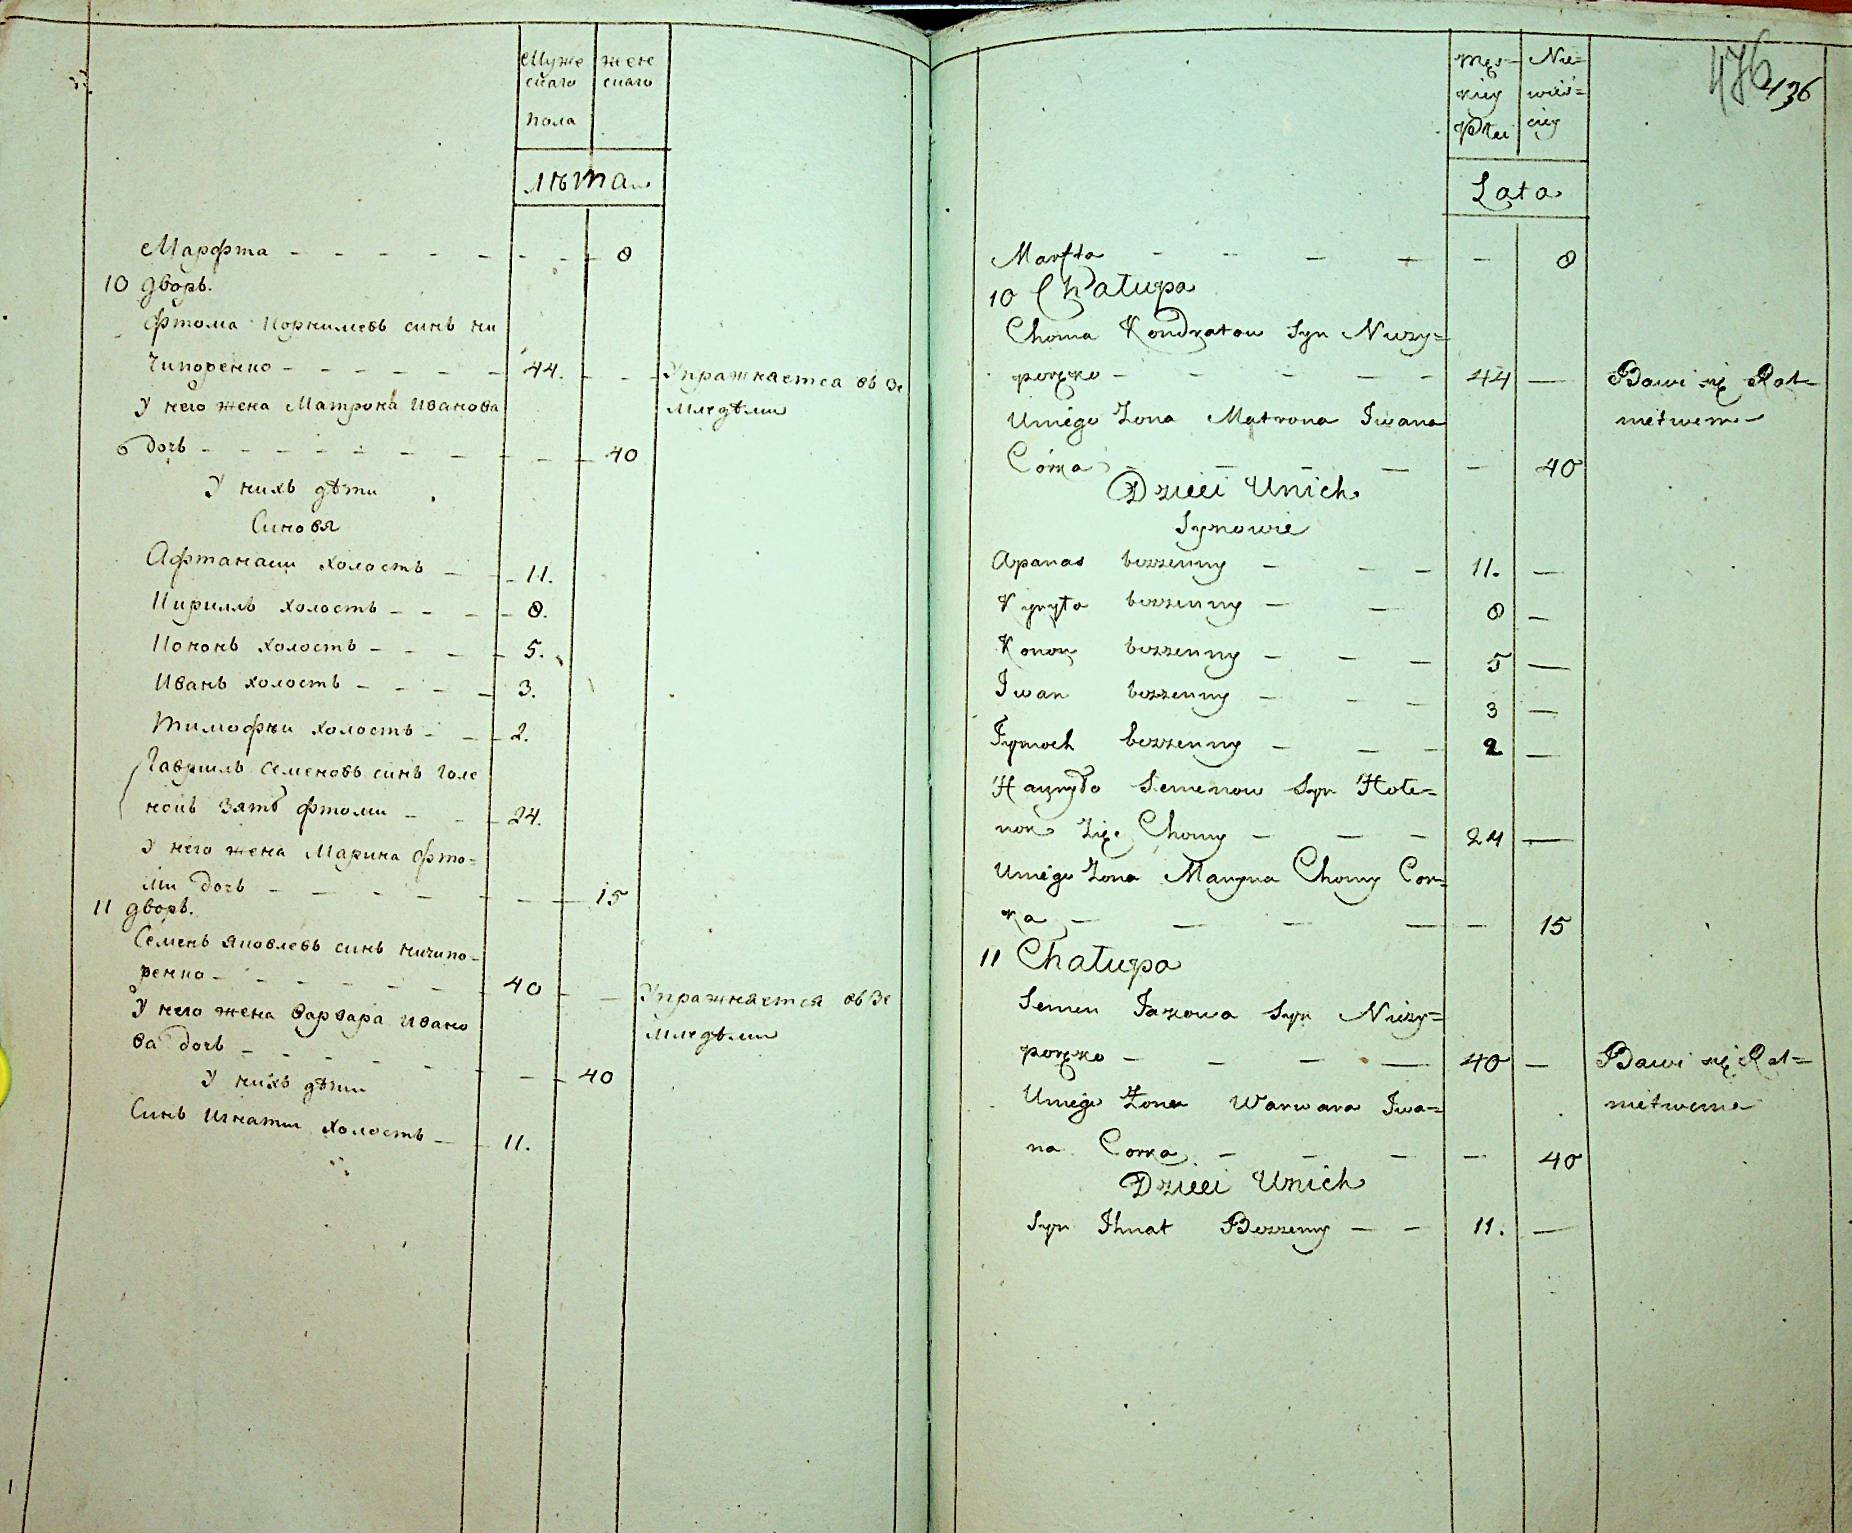 Муже
скаго
пола
жен
скаго
лѣта
Марфта - - - - - - - 8
10 дворъ.
Фтома Корнилевъ синъ ни
чипоренко - - - - - - 44. - - Упражняется въ зе
У него жена Матрона Иванова
мледѣли
дочь - - - - - - - - - 40
У нихъ дѣти
Синовя
Афтанаши холостъ - - - 11.
Кириллъ холостъ - - - - 8.
Кононъ холостъ - - - - 5.
Иванъ холостъ - - - - 3.
Тимофѣи холостъ - - - 2.
Гаврилъ Семеновъ синъ Голе
нокъ Зять Фтоми - - - 24.
У него жена Марина Фто-
ми дочь - - - - - - - - 15
11 дворъ.
Семенъ Яковлевъ синъ ничипо-
ренко - - - - - - - 40 - - Упражняется въ зе
мледѣли
У него жена Варвара Ивано
ва дочь - - - - - - - 40
У нихъ дѣти
Синъ Игнати холостъ - - 11.
476
136
Męs=
kiey
Płci
Nie=
wieś=
ciey
Lata
Marfta - - - - - 8
10 Chałupa
Choma Kondratow Syn Niczy=
poręko - - - - - 44 — Bawi się Rol=
nictwem
Uniego Zona Matrona Iwana
Córka - - - - - 40
Dzieci Unich
Synowie
Apanas bezzenny - - - 11. —
Kyryło bezzenny - - 8 —
Konon bezzenny - - - 5 —
Iwan bezzenny - - - 3 —
Tymoch bezzenny - - - 2 —
Hawryło Semenow Syn Hole=
nok Zięc Chomy - - - 24 —
Uniego Zona Maryna Chomy Cor=
ka - - - - - 15
11 Chałupa
Semen Jakowa Syn Niczy=
poręko - - - - 40 — Bawi się Rol=
nictwem
Uniego Zona Warwara Iwa=
na Corka - - - - 40
Dzieci Unich
Syn Ihnat Bezzenny - - 11. —